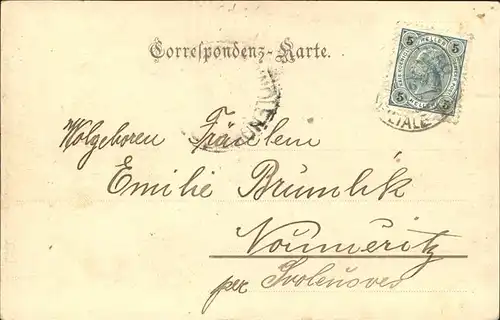 Correspondenz-Karte.
5 HELLER 5
5 HELLER 5
Wolgeboren Fräulein
Emilie Brümlik
Noumeritz
per Zvolenoves